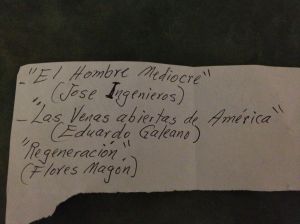 -"El Hombre Mediocre"
(Jose Ingenieros)
-"Las Venas abiertas de América"
(Eduardo Galeano)
"Regeneración"
(Flores Magón)